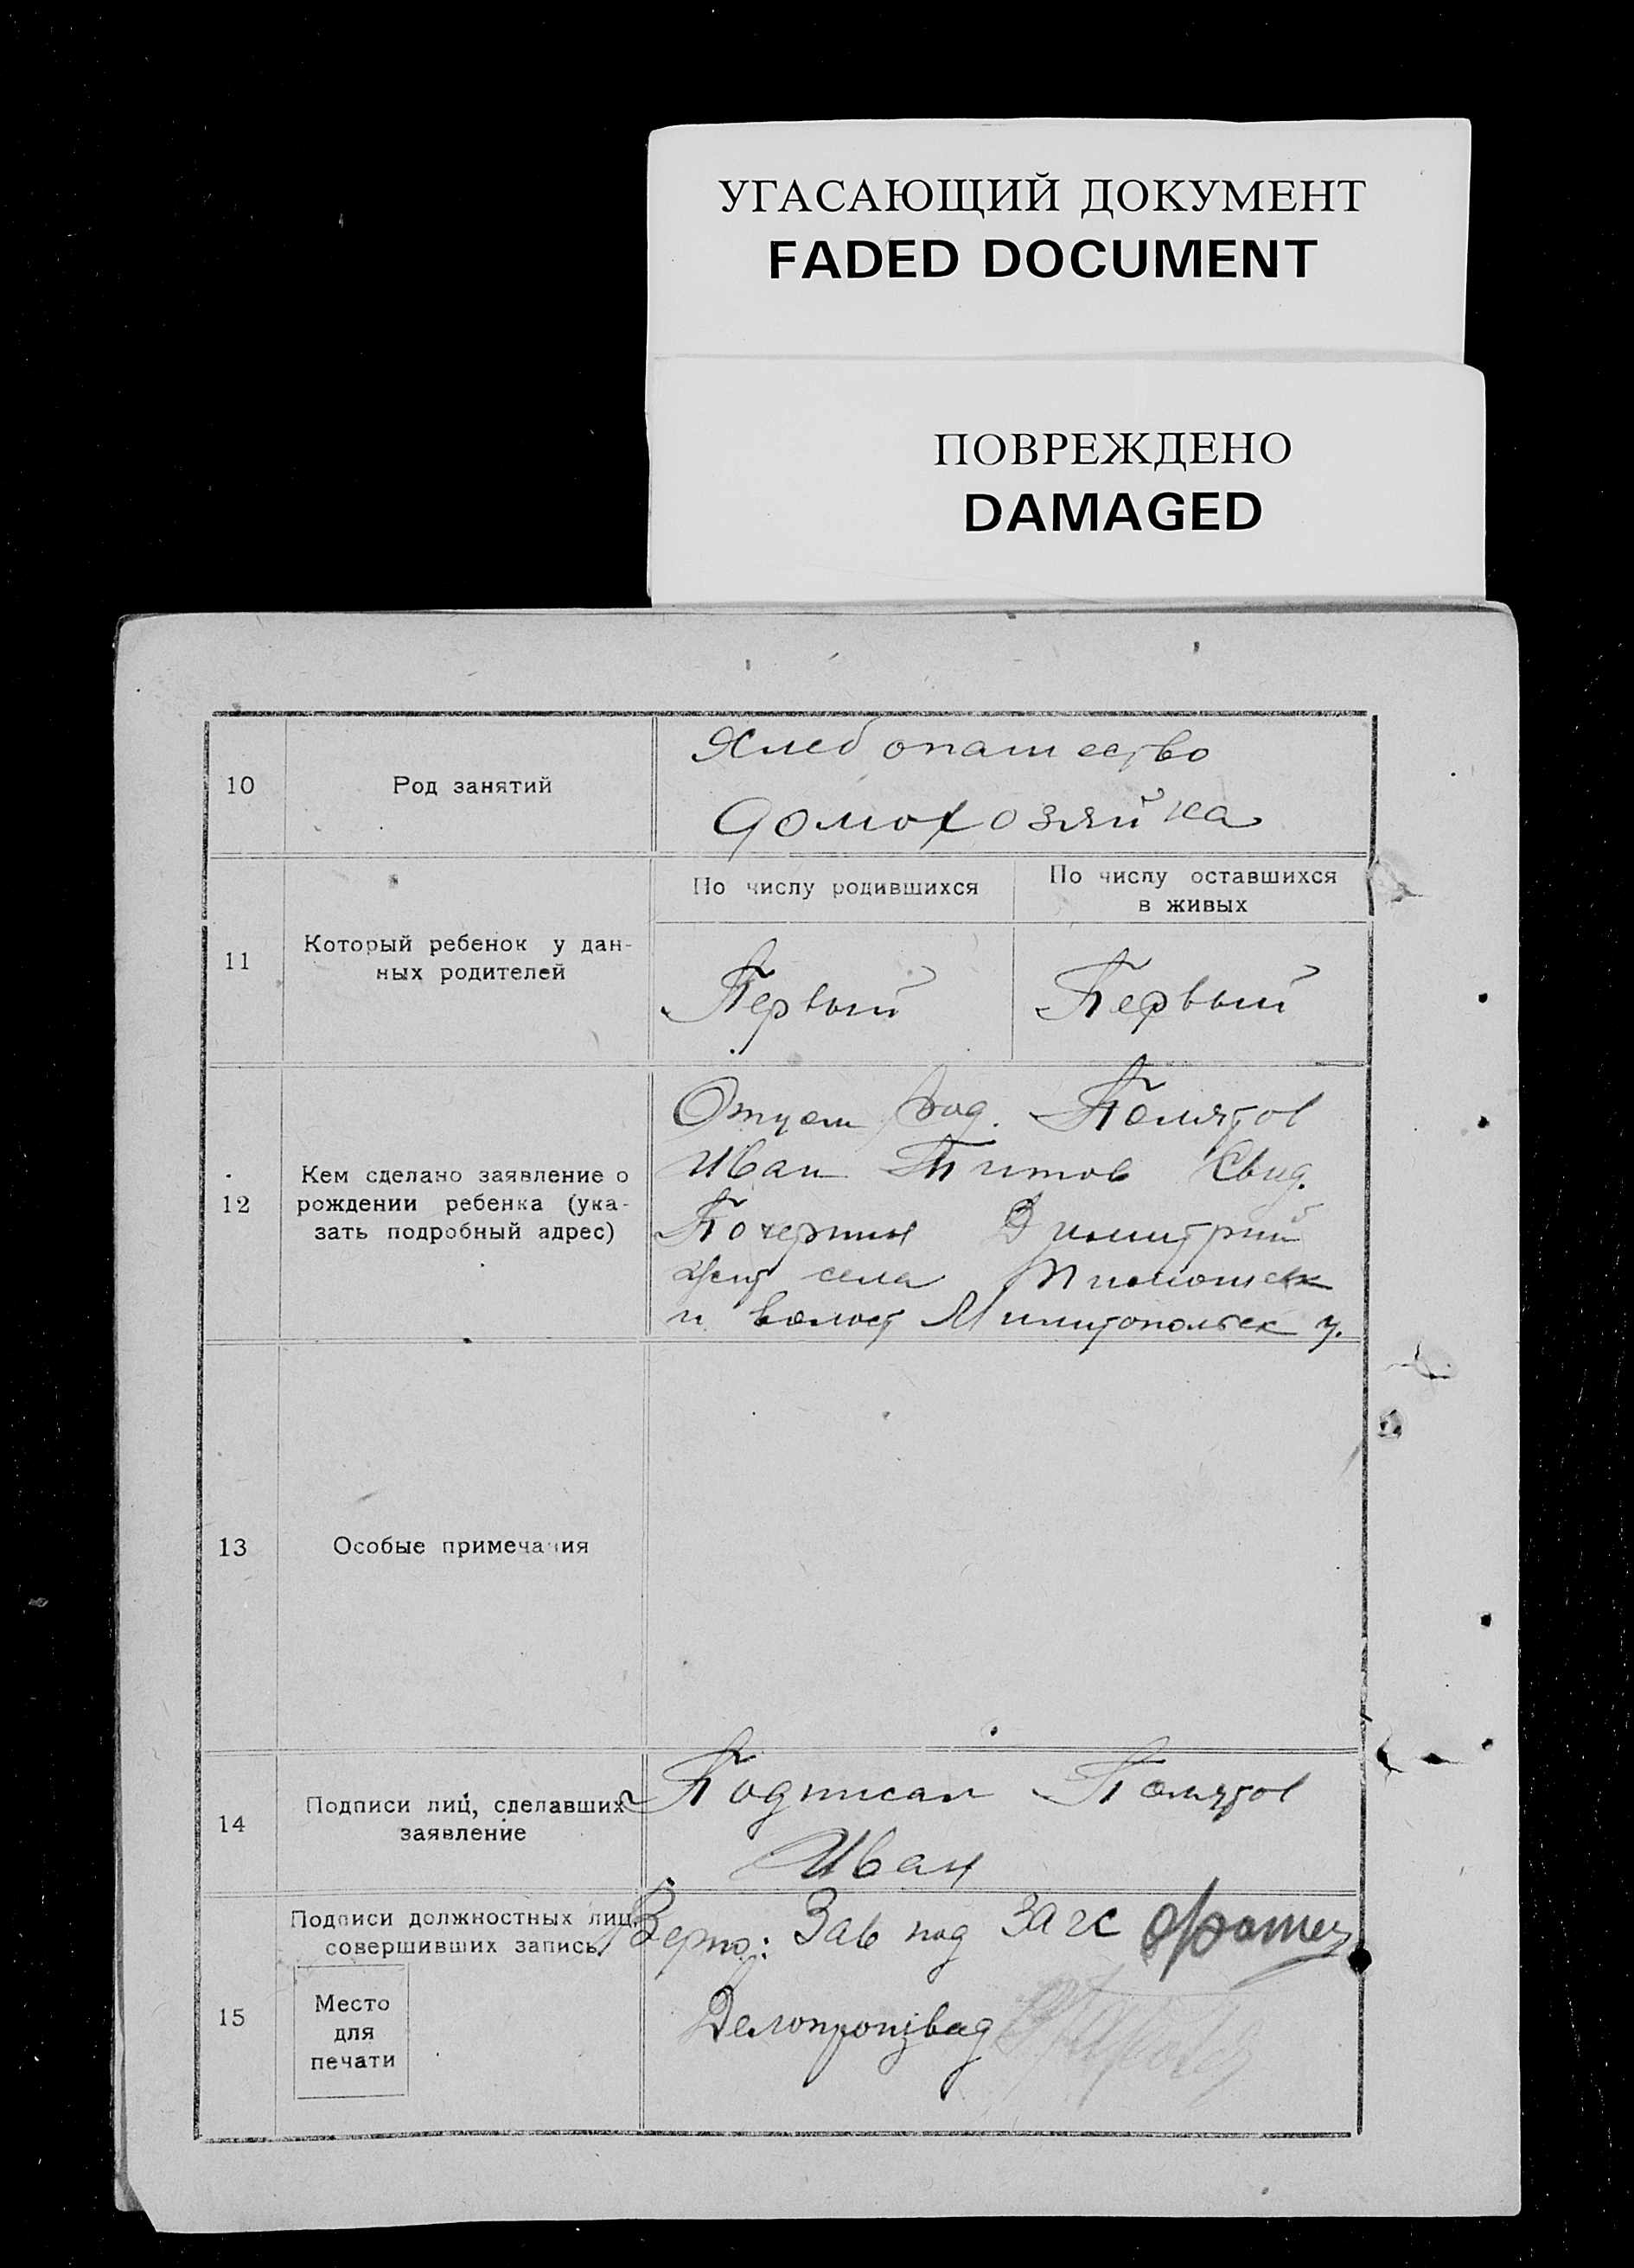 УГАСАЮЩИЙ ДОКУМЕНТ
FADED DOCUMENT
ПОВРЕЖДЕНО
DAMAGED
10
Род занятий
Хлебопашество
домохозяйка
11
Который ребенок у дан-
ных родителей
По числу родившихся
По числу оставшихся
в живых
Первый
Первый
12
Кем сделано заявление о
рождении ребенка (ука-
зать подробный адрес)
Отцом
Иван Титов Свид.
Димитрий
жит села
и волост у.
13
Особые примечания
14
Подписи лиц, сделавших
заявление
Подписал
Иван
15
Подписи должностных лиц,
совершивших запись
Место
для
печати
Верно: Зав под ЗАГС
Делопроизвод